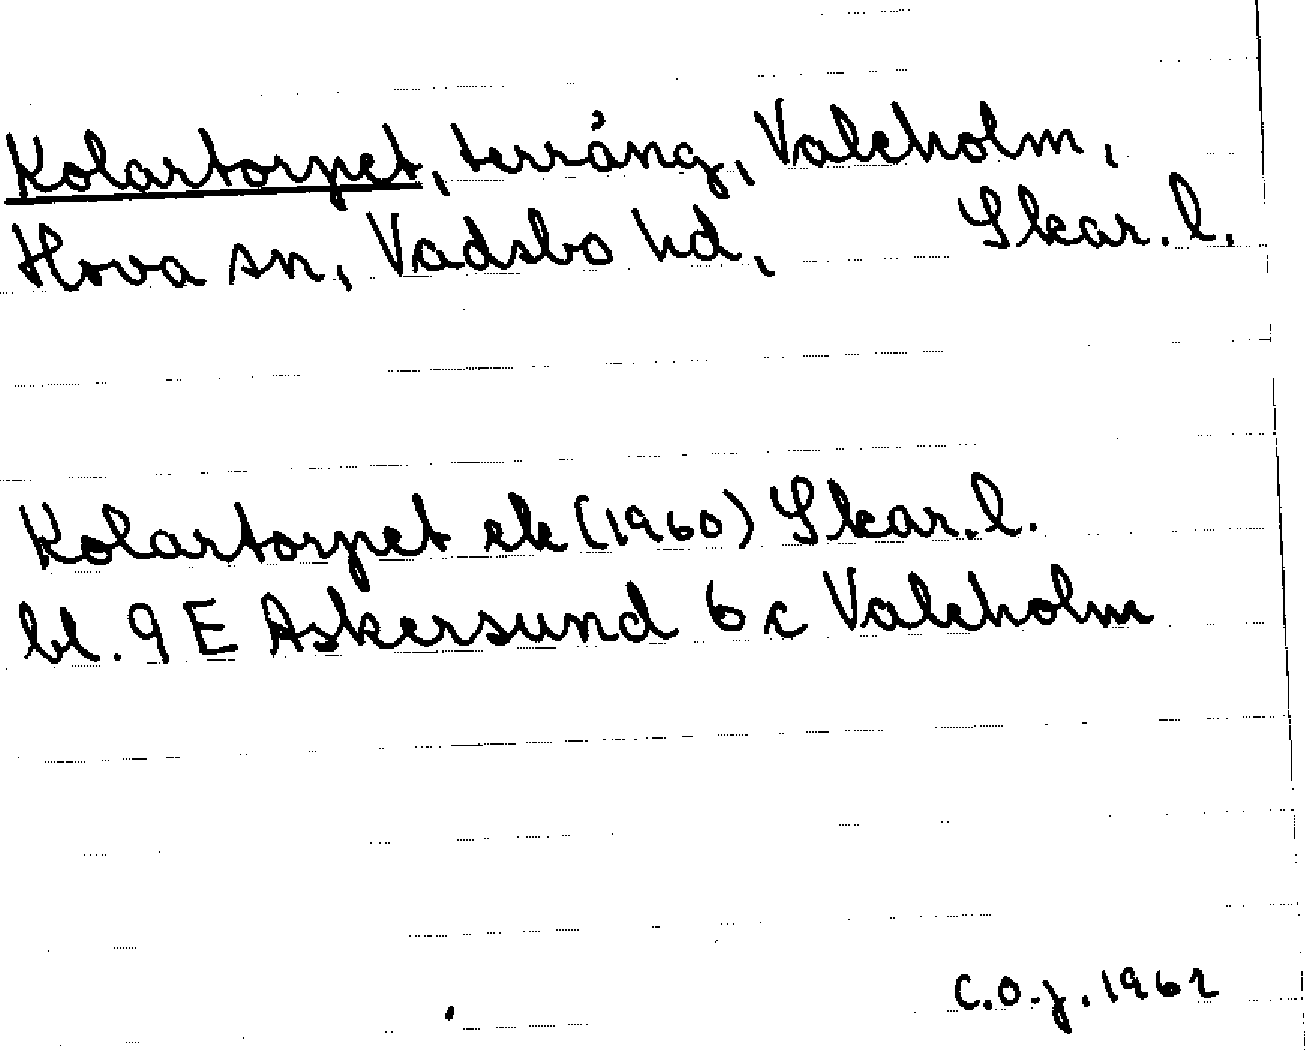 Kolartorpet, terräng, Valeholm,
Hova sn, Vadsbo hd, Skar. l.
Kolartorpet ek (1960) Skar. l.
bl. 9 E Askersund 6 c Valeholm
C.O.J. 1962